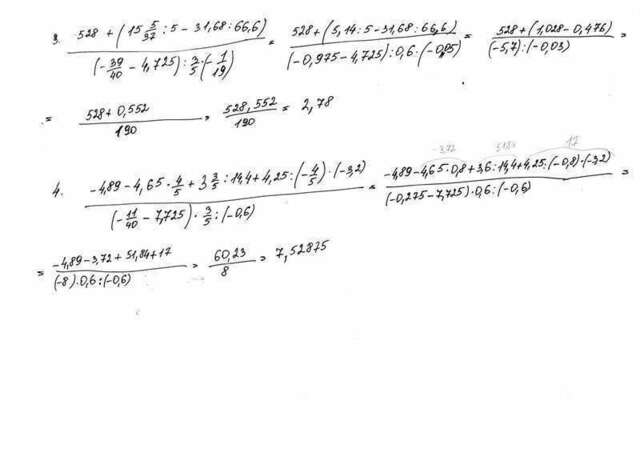 3. (528 + (15 5/37 : 5 - 31,68 : 66,6)) / ((-39/40 - 4,725) : 3/5 · (-1/19)) = (528 + (5,14 : 5 - 31,68 : 66,6)) / ((-0,975 - 4,725) : 0,6 · (-0,05)) = (528 + (1,028 - 0,476)) / ((-5,7) : (-0,03)) =
= (528 + 0,552) / 190 = 528,552 / 190 = 2,78
-3,72 5184 17
4. (-4,89 - 4,65 · 4/5 + 3 3/5 : 14,4 + 4,25 : (-4/5) · (-3,2)) / ((-11/40 - 7,725) · 3/5 : (-0,6)) = (-4,89 - 4,65 · 0,8 + 3,6 : 14,4 + 4,25 : (-0,8) · (-3,2)) / ((-0,275 - 7,725) · 0,6 : (-0,6)) =
= (-4,89 - 3,72 + 51,84 + 17) / ((-8) · 0,6 : (-0,6)) = 60,23 / 8 = 7,52875